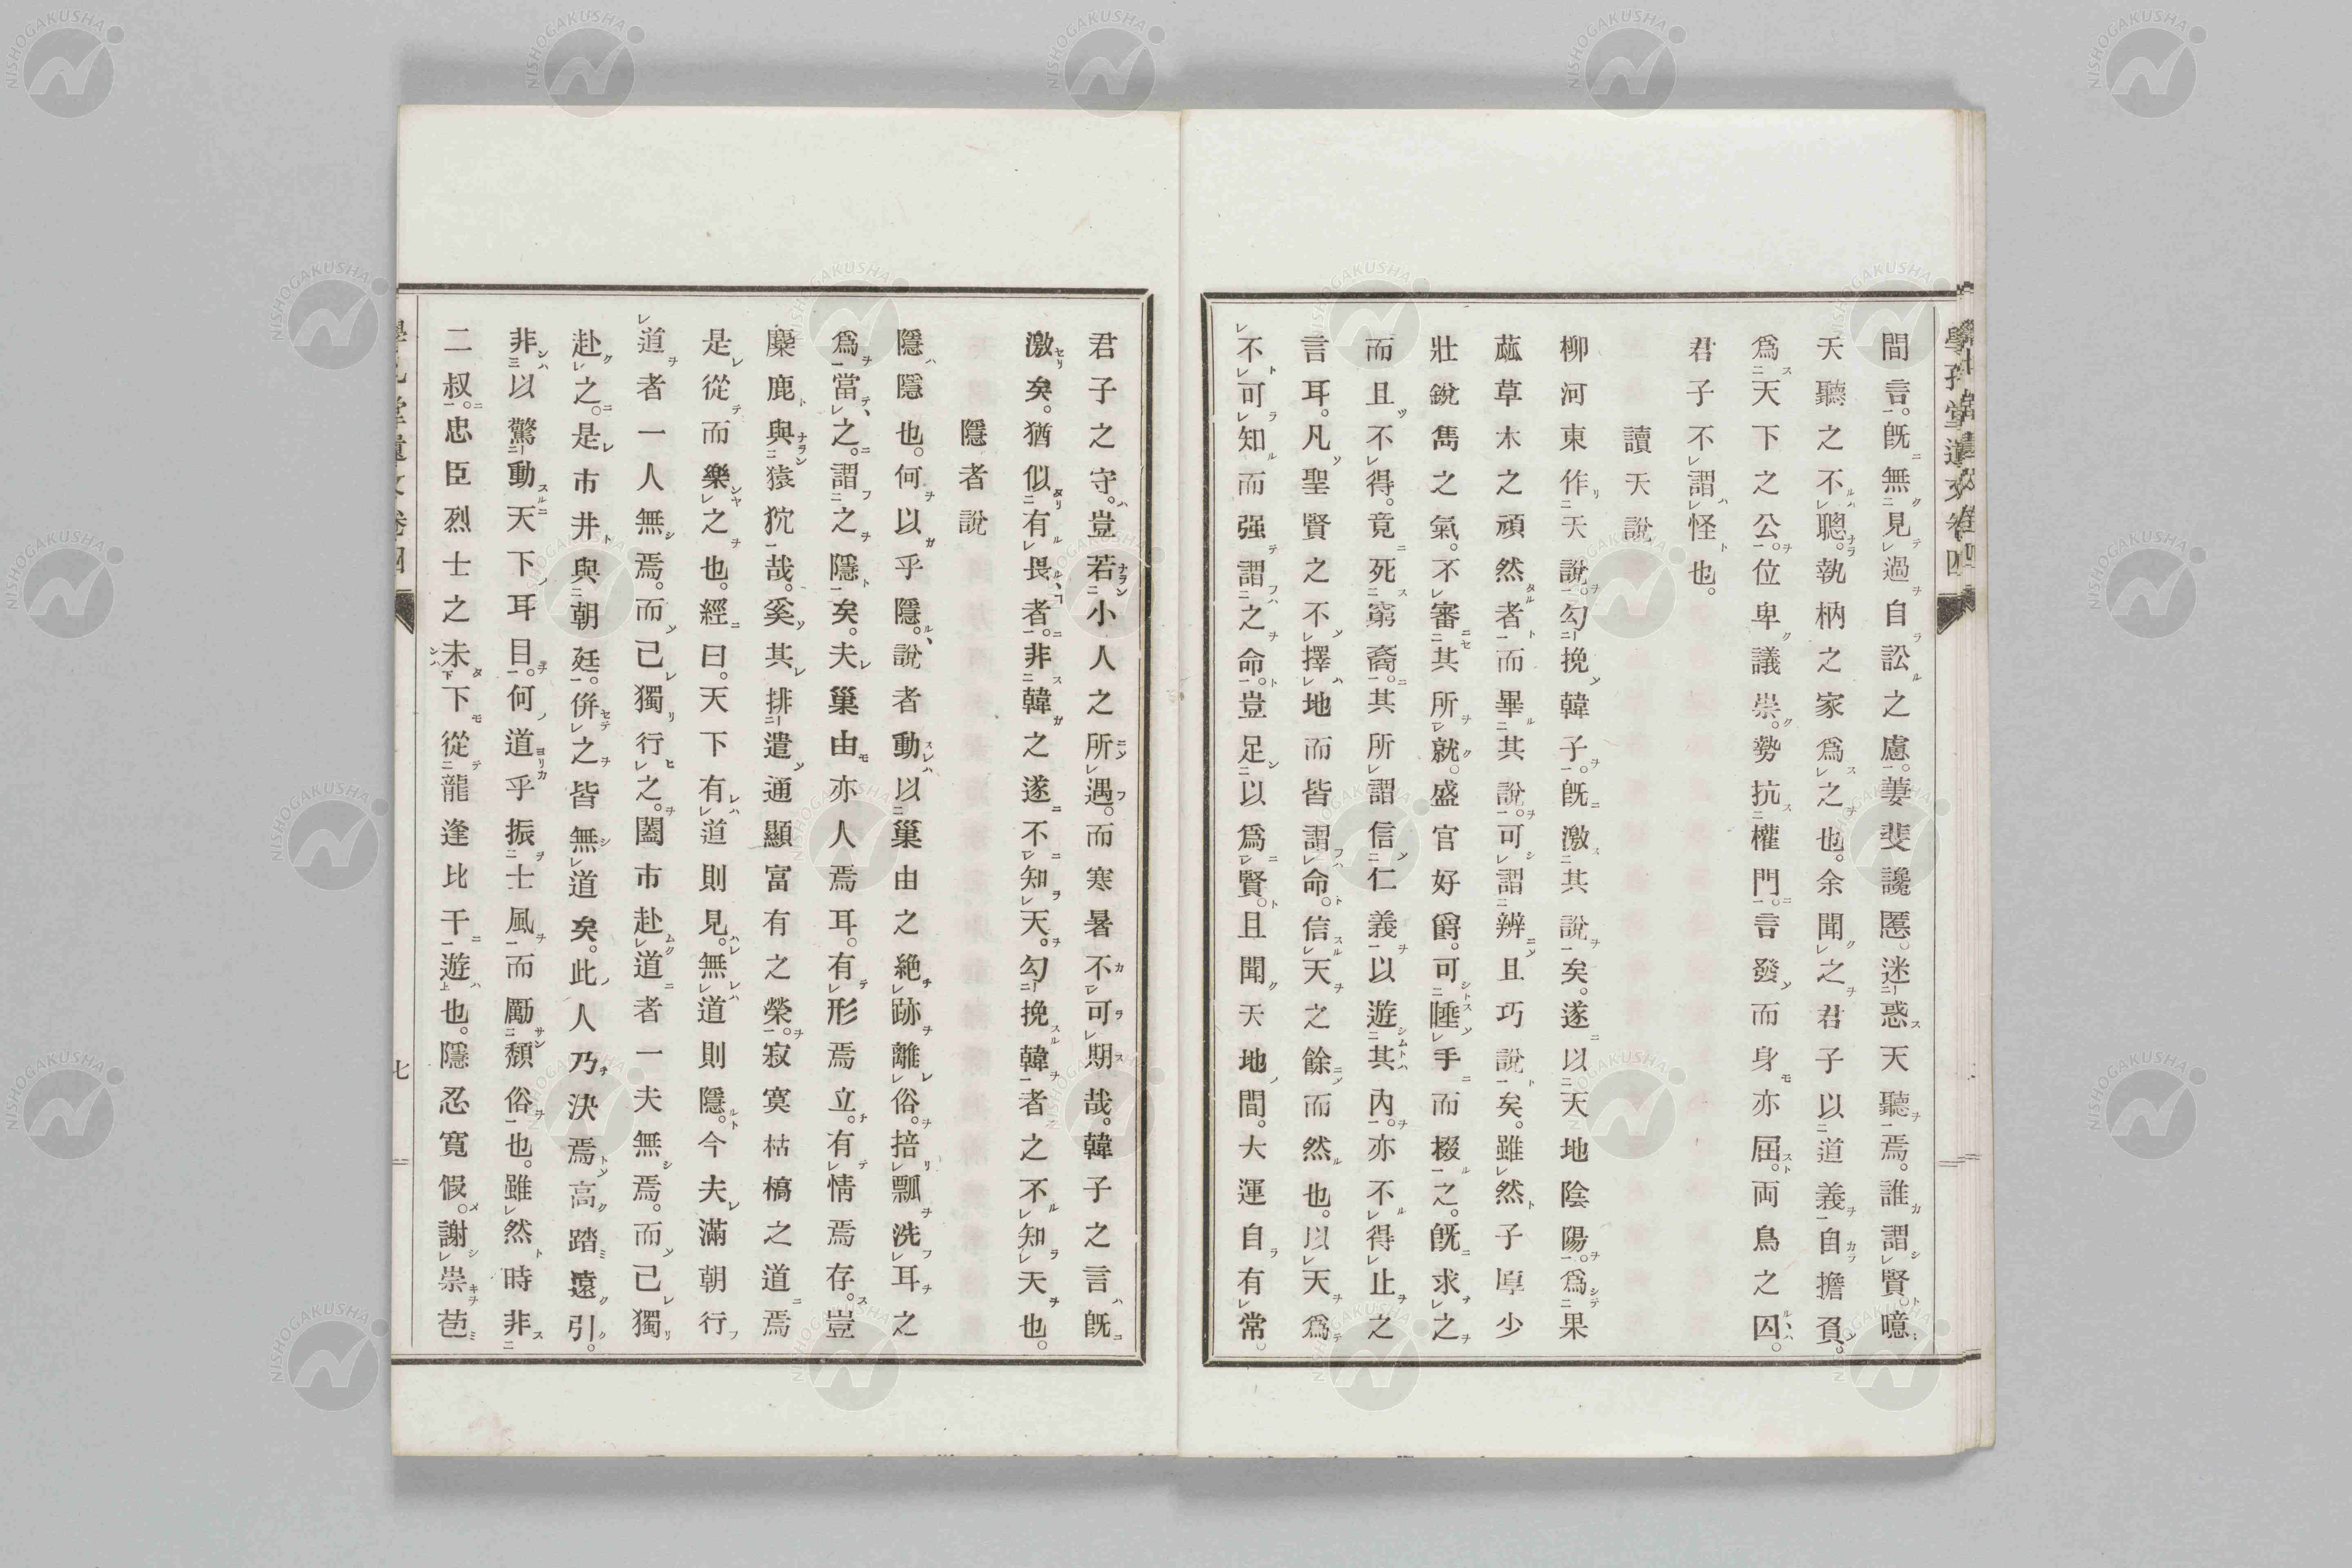 間言。既無見過自訟之慮。萋斐讒慝。迷惑天聽焉。誰謂賢。噫
天聽之不聰。執柄之家爲之也。余聞之君子以道義自擔負。
爲天下之公。位卑議崇。勢抗權門。言發而身亦屈。両鳥之囚。
君子不謂怪也。
讀天說
柳河東作天說。勾挽韓子。既激其說矣。遂以天地陰陽。爲果
蓏草木之頑然者。而畢其說。可謂辨且巧說矣。雖然子厚少
壯銳雋之氣。不審其所就。盛官好爵。可唾手而掇之。既求之
而且不得。竟死窮裔。其所謂信仁義以遊其內。亦不得止之
言耳。凡聖賢之不擇地而皆謂命。信天之餘而然也。以天爲
不可知而强謂之命。豈足以爲賢。且聞天地間。大運自有常。
君子之守。豈若小人之所遇。而寒暑不可期哉。韓子之言既
激矣。猶似有畏者。非韓之遂不知天。勾挽韓者之不知天也。
隱者說
隱隱也。何以乎隱。說者動以巢由之絕跡離俗。掊瓢洗耳之
爲當之。謂之隱矣。夫巢由亦人焉耳。有形焉立。有情焉存。豈
麋鹿與猿狖哉。奚其排遣通顯富有之榮。寂寞枯槁之道焉
是從而樂之也。經曰。天下有道則見。無道則隱。今夫滿朝行
道者一人無焉。而己獨行之。闔市赴道者一夫無焉。而己獨
赴之。是市井與朝廷。倂之皆無道矣。此人乃決焉高踏遠引。
非以驚動天下耳目。何道乎振士風而勵頹俗也。雖然時非
二叔。忠臣烈士之未下從龍逢比干遊也。隱忍寬假。謝崇芭
學孔堂遺文卷四
七